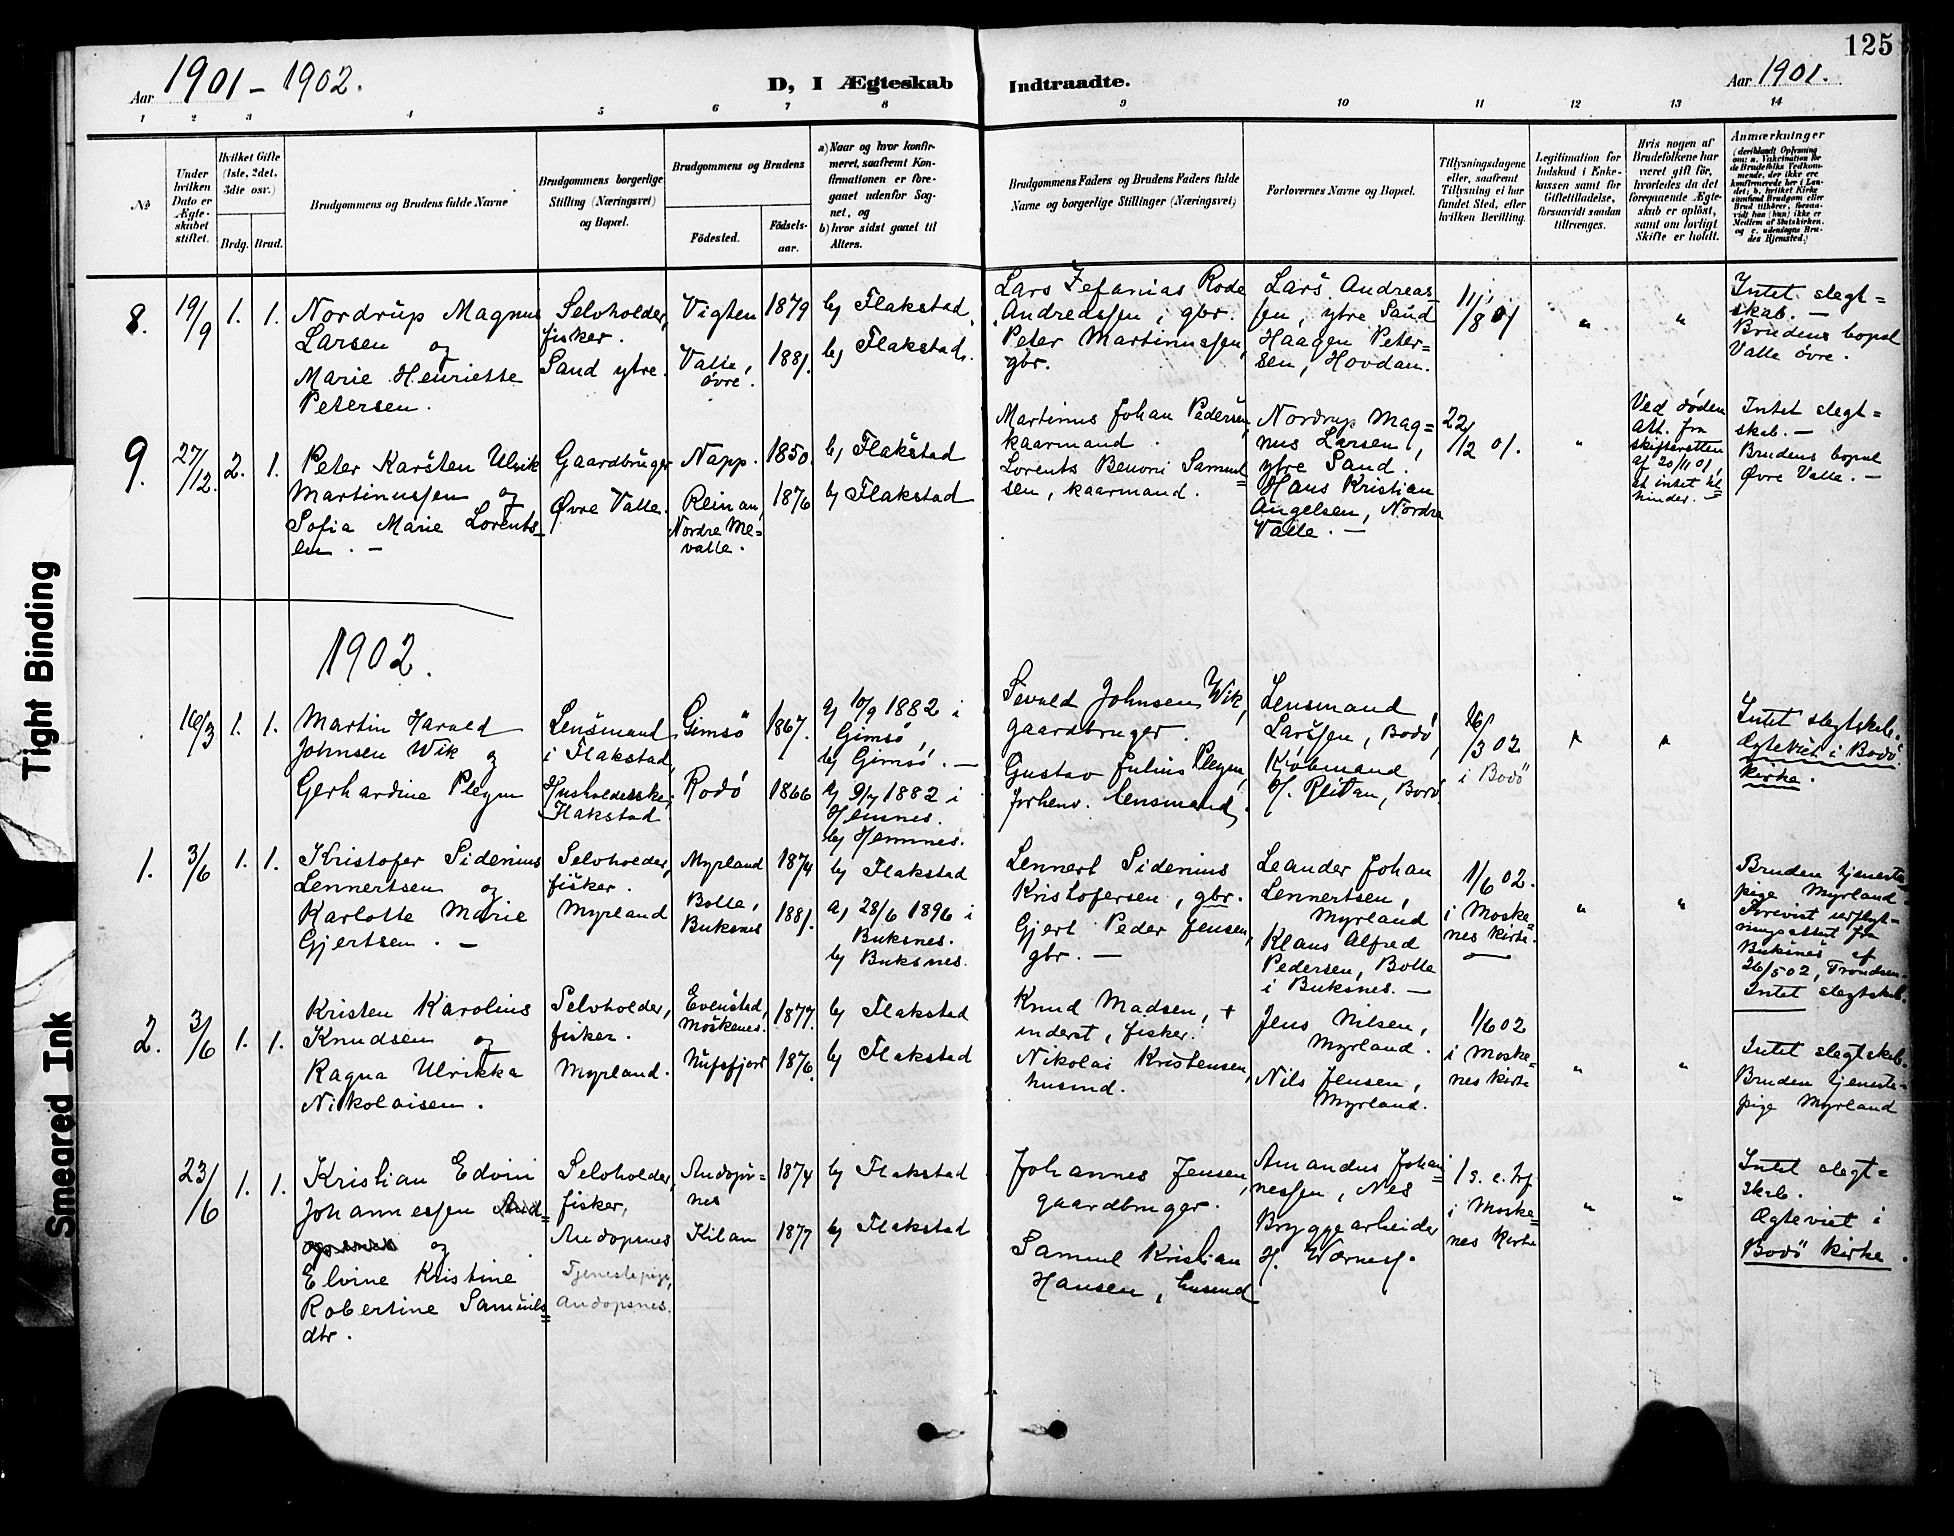 125
Aar 1901 - 1902.
D, I Ægteskab Indtraadte.
Aar 1901.
1 2 3 4 5 6 7 8 9 10 11 12 13 14
No
Under hvilken Dato er Ægteskabet stiftet.
Hvilket Gifte (1ste, 2det, 3die osv.)
Brdg. Brud.
Brudgommens og Brudens fulde Navne
Brudgommens borgerlige Stilling (Næringsvei) og Bopæl.
Brudgommens og Brudens
Fødested.
Fødselsaar.
a) Naar og hvor konfirmeret, saafremt Konfirmationen er foregaaet udenfor Sognet, og
b) hvor sidst gaaet til Alters.
Brudgommens Faders og Brudens Faders fulde Navne og borgerlige Stillinger (Næringsvei)
Forlovernes Navne og Bopæl.
Tillysningsdagene eller, saafremt Tillysning ei har fundet Sted, efter hvilken Bevilling.
Legitimation for Indskud i Enkekassen samt for Giftetilladelse, forsaavidt saadan tiltrænges.
Hvis nogen af Brudefolkene har været gift før, hvorledes da det foregaaende Ægteskab er opløst, samt om lovligt Skifte er holdt.
Anmærkninger
(deriblandt Oplysning om: a. Vakcination for de Brudefolks Vedkommende, der ikke ere konfirmerede her i Landet; b. hvilket Kirkesamfund Brudgom eller Brud tilhører, forsaavidt han (hun) ikke er Medlem af Statskirken, og c. udensogns Brudes Hjemsted.)
8. 19/9 1. 1.
Nordrup Magnus
Larsen og
Marie Henriette
Petersen.
Selvholder,
fisker.
Sand ytre.
Vigten 1879
Valle, øvre. 1881.
b) Flakstad.
b) Flakstad.
Lars Zefanias Rode
Andreassen, gbr.
Peter Martinussen,
gbr.
Lars Andreas-
sen, ytre Sand
Haagen Peter=
sen, Hovdan.
11/8 01
"
"
Intet slegt=
skab. —
Brudens bopel
Valle øvre.
9. 27/12. 2. 1.
Peter Karsten Ulrik
Martinussen og
Sofia Marie Lorents-
en. —
Gaardbruger
Øvre Valle.
Napp. 1850.
Reinan, 1876
Nordre Me=
valle.
b) Flakstad
b) Flakstad
Martinus Johan Pedersen,
kaarmand.
Lorents Benoni Samuel=
sen, kaarmand.
Nordrup Mag=
nus Larsen,
ytre Sand.
Hans Kristian
Angelsen, Nordre
Valle. —
22/12 01.
"
Ved døden
Att. fra
skifteretten
af 20/11 01,
at intet til
hinder. —
Intet slegt=
skab. —
Brudens bopel
Øvre Valle. —
1902.
16/3 1. 1.
Martin Harald
Johnsen Wik og
Gerhardine Pleym
Lensmand
i Flakstad,
Flakstad.
Gimsö 1867.
Rodö 1866
a) 10/9 1882 i
Gimsö,
b) Gimsö. —
a) 9/7 1882 i
Hemnes.
b) Hemnes.
Sevald Johnsen Wik,
gaardbruger.
Gustav Julius Pleym,
forhenv. lensmand.
Lensmand
Larssen, Bodö,
Kjøbmand
Bodö.
16/3 02
i Bodö
"
"
Intet slegtskab.
Ægteviet i Bodö
kirke.
1. 3/6 1. 1.
Kristofer Sidenius
Lennertsen og
Karlotte Marie
Gjertsen. —
Selvholder,
fisker.
Myrland
Myrland 1874
Bolle, 1881.
Buksnes
b) Flakstad
a) 28/6 1896 i
Buksnes.
b) Buksnes.
Lennert Sidenius
Kristofersen, gbr.
Gjert Peder Jensen,
gbr. —
Leander Johan
Lennertsen,
Myrland
Klaus Alfred
Pedersen, Bolle
i Buksnes. —
1/6 02.
i Moske=
nes kirke.
"
"
Bruden tjeneste
pige Myrland
Forevist udflyt-
ningsattest fra
Buksnes af
26/5 02, Trondsen.
Intet slegtskab.
2. 3/6 1. 1.
Kristen Karolius
Knudsen og
Ragna Ulrikka
Nikolaisen.
Selvholder,
fisker.
Myrland.
Evenstad, 1877.
Moskenes.
Nufsfjord 1876.
b) Flakstad
b) Flakstad
Knud Madsen, +
inderst, fisker.
Nikolai Kristensen,
husmd.
Jens Nilsen,
Myrland.
Nils Jensen,
Myrland.
1/6 02
i Moske=
nes kirke
"
"
Intet slegtskab.
Bruden tjeneste-
pige Myrland
23/6 1. 1.
Kristian Edvin
Johannessen
og
Elvine Kristine
Robertine Samuels=
dtr.
Selvholder,
fisker,
Andopsnes
Tjenestepige,
Andopsnes.
Andops-
nes 1874
Kilan 1877
b) Flakstad
b) Flakstad
Johannes Jensen,
gaardbruger.
Samuel Kristian
Hansen, husmd
Amandus Johan=
nessen, Nes
Bryggearbeider
H. Wærnes.
1 s. e. trf
i Moske=
nes kirke
"
"
Intet slegt=
skab.
Ægteviet i
Bodö kirke.
Tight Binding
Smeared Ink